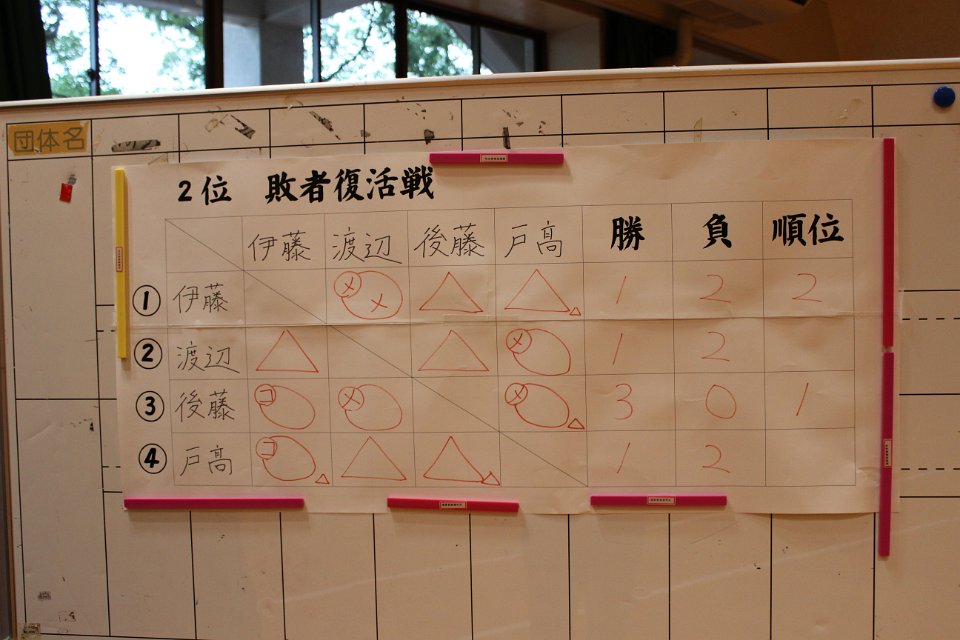 団体名
2位 敗者復活戦
伊藤 渡辺 後藤 戸髙 勝 負 順位
① 伊藤 1 2 2
② 渡辺 1 2
③ 後藤 3 0 1
④ 戸髙 1 2